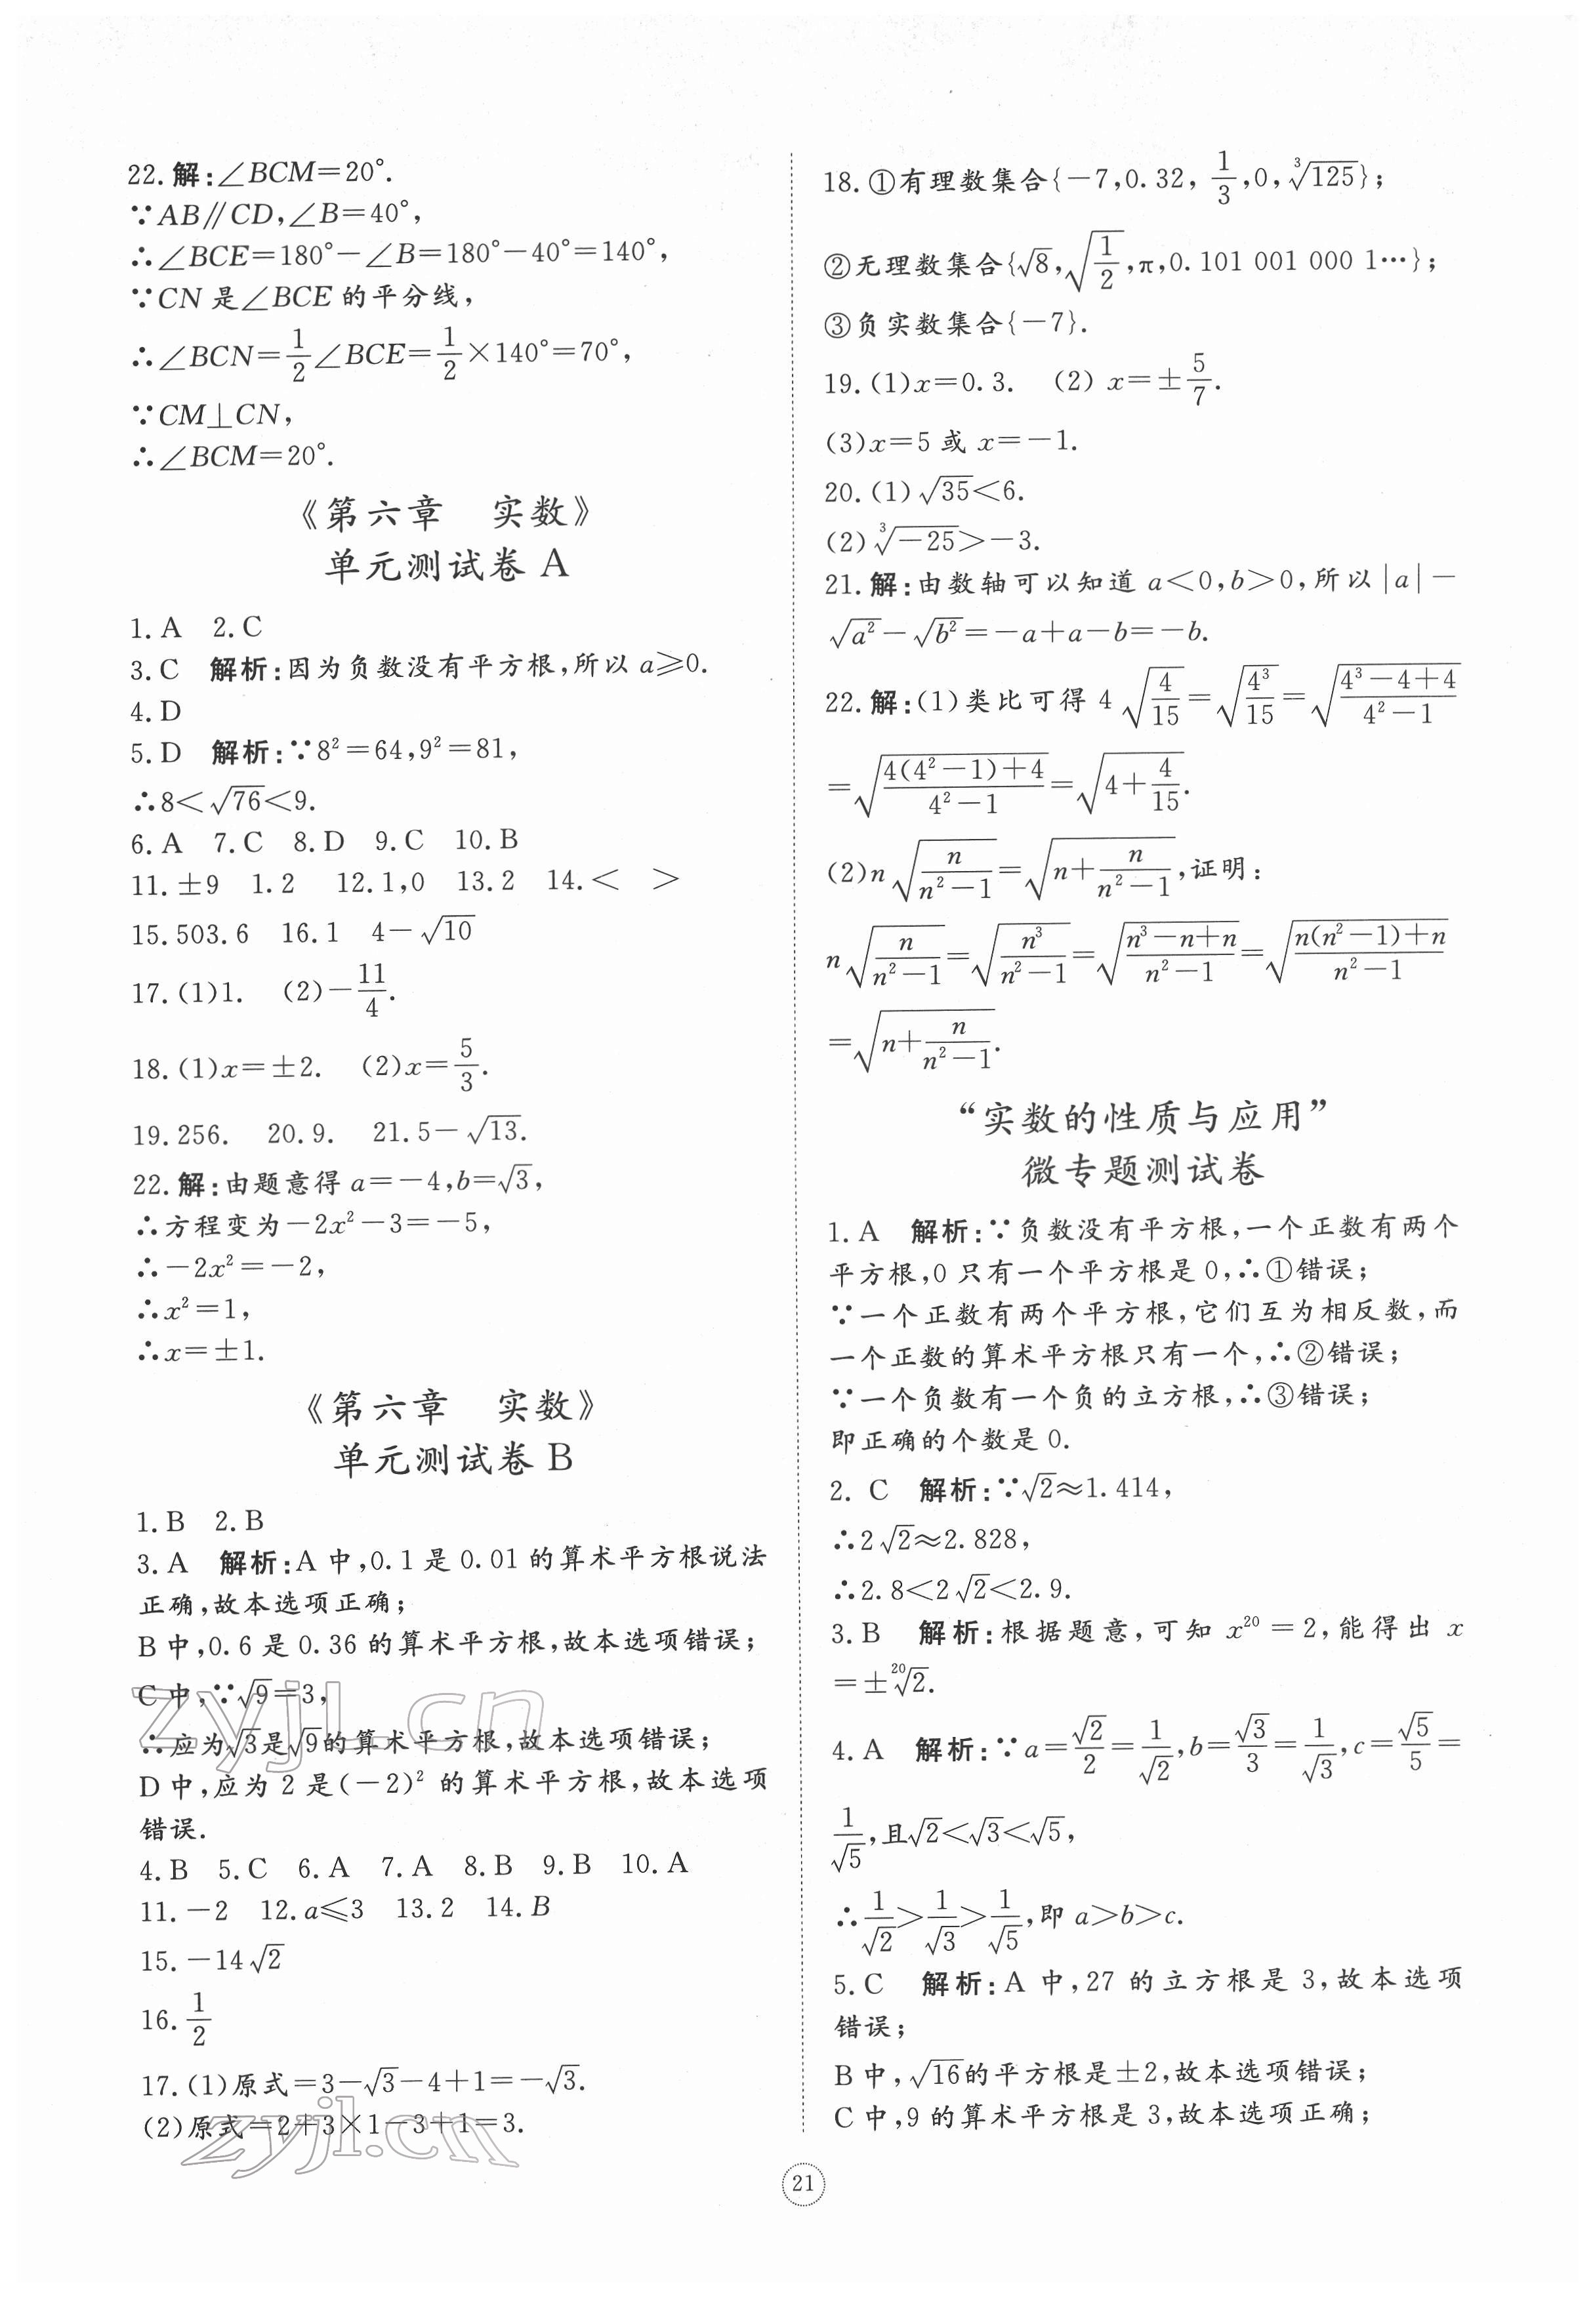 22.解:∠BCM=20°.
∵AB∥CD,∠B=40°,
∴∠BCE=180°-∠B=180°-40°=140°,
∵CN 是∠BCE 的平分线,
∴∠BCN=1/2∠BCE=1/2×140°=70°,
∵CM⊥CN,
∴∠BCM=20°.
《第六章 实数》
单元测试卷 A
1.A 2.C
3.C 解析:因为负数没有平方根,所以 a≥0.
4.D
5.D 解析:∵8²=64,9²=81,
∴8<√76<9.
6.A 7.C 8.D 9.C 10.B
11.±9 1.2 12.1,0 13.2 14.< >
15.503.6 16.1 4-√10
17.(1)1. (2)-11/4.
18.(1)x=±2. (2)x=5/3.
19.256. 20.9. 21.5-√13.
22.解:由题意得 a=-4,b=√3,
∴方程变为-2x²-3=-5,
∴-2x²=-2,
∴x²=1,
∴x=±1.
《第六章 实数》
单元测试卷 B
1.B 2.B
3.A 解析:A 中,0.1 是 0.01 的算术平方根说法
正确,故本选项正确;
B 中,0.6 是 0.36 的算术平方根,故本选项错误;
C 中,∵√9=3,
∴应为√3是√9的算术平方根,故本选项错误;
D 中,应为 2 是(-2)² 的算术平方根,故本选项
错误.
4.B 5.C 6.A 7.A 8.B 9.B 10.A
11.-2 12.a≤3 13.2 14.B
15.-14√2
16.1/2
17.(1)原式=3-√3-4+1=-√3.
(2)原式=2+3×1-3+1=3.
18.①有理数集合{-7,0.32,1/3,0,∛125};
②无理数集合{√8,√(1/2),π,0.101 001 000 1…};
③负实数集合{-7}.
19.(1)x=0.3. (2) x=±5/7.
(3)x=5 或 x=-1.
20.(1)√35<6.
(2)∛-25>-3.
21.解:由数轴可以知道 a<0,b>0,所以|a|-
√a²-√b²=-a+a-b=-b.
22.解:(1)类比可得 4√(4/15)=√(4³/15)=√((4³-4+4)/(4²-1))
=√((4(4²-1)+4)/(4²-1))=√(4+4/15).
(2)n√(n/(n²-1))=√(n+n/(n²-1)),证明:
n√(n/(n²-1))=√(n³/(n²-1))=√((n³-n+n)/(n²-1))=√((n(n²-1)+n)/(n²-1))
=√(n+n/(n²-1)).
“实数的性质与应用”
微专题测试卷
1.A 解析:∵负数没有平方根,一个正数有两个
平方根,0 只有一个平方根是 0,∴①错误;
∵一个正数有两个平方根,它们互为相反数,而
一个正数的算术平方根只有一个,∴②错误;
∵一个负数有一个负的立方根,∴③错误;
即正确的个数是 0.
2. C 解析:∵√2≈1.414,
∴2√2≈2.828,
∴2.8<2√2<2.9.
3.B 解析:根据题意,可知 x²⁰=2,能得出 x
=±²⁰√2.
4.A 解析:∵a=√2/2=1/√2,b=√3/3=1/√3,c=√5/5=
1/√5,且√2<√3<√5,
∴1/√2>1/√3>1/√5,即 a>b>c.
5.C 解析:A 中,27 的立方根是 3,故本选项
错误;
B 中,√16的平方根是±2,故本选项错误;
C 中,9 的算术平方根是 3,故本选项正确;
21
zyjl.cn
zyjl.cn